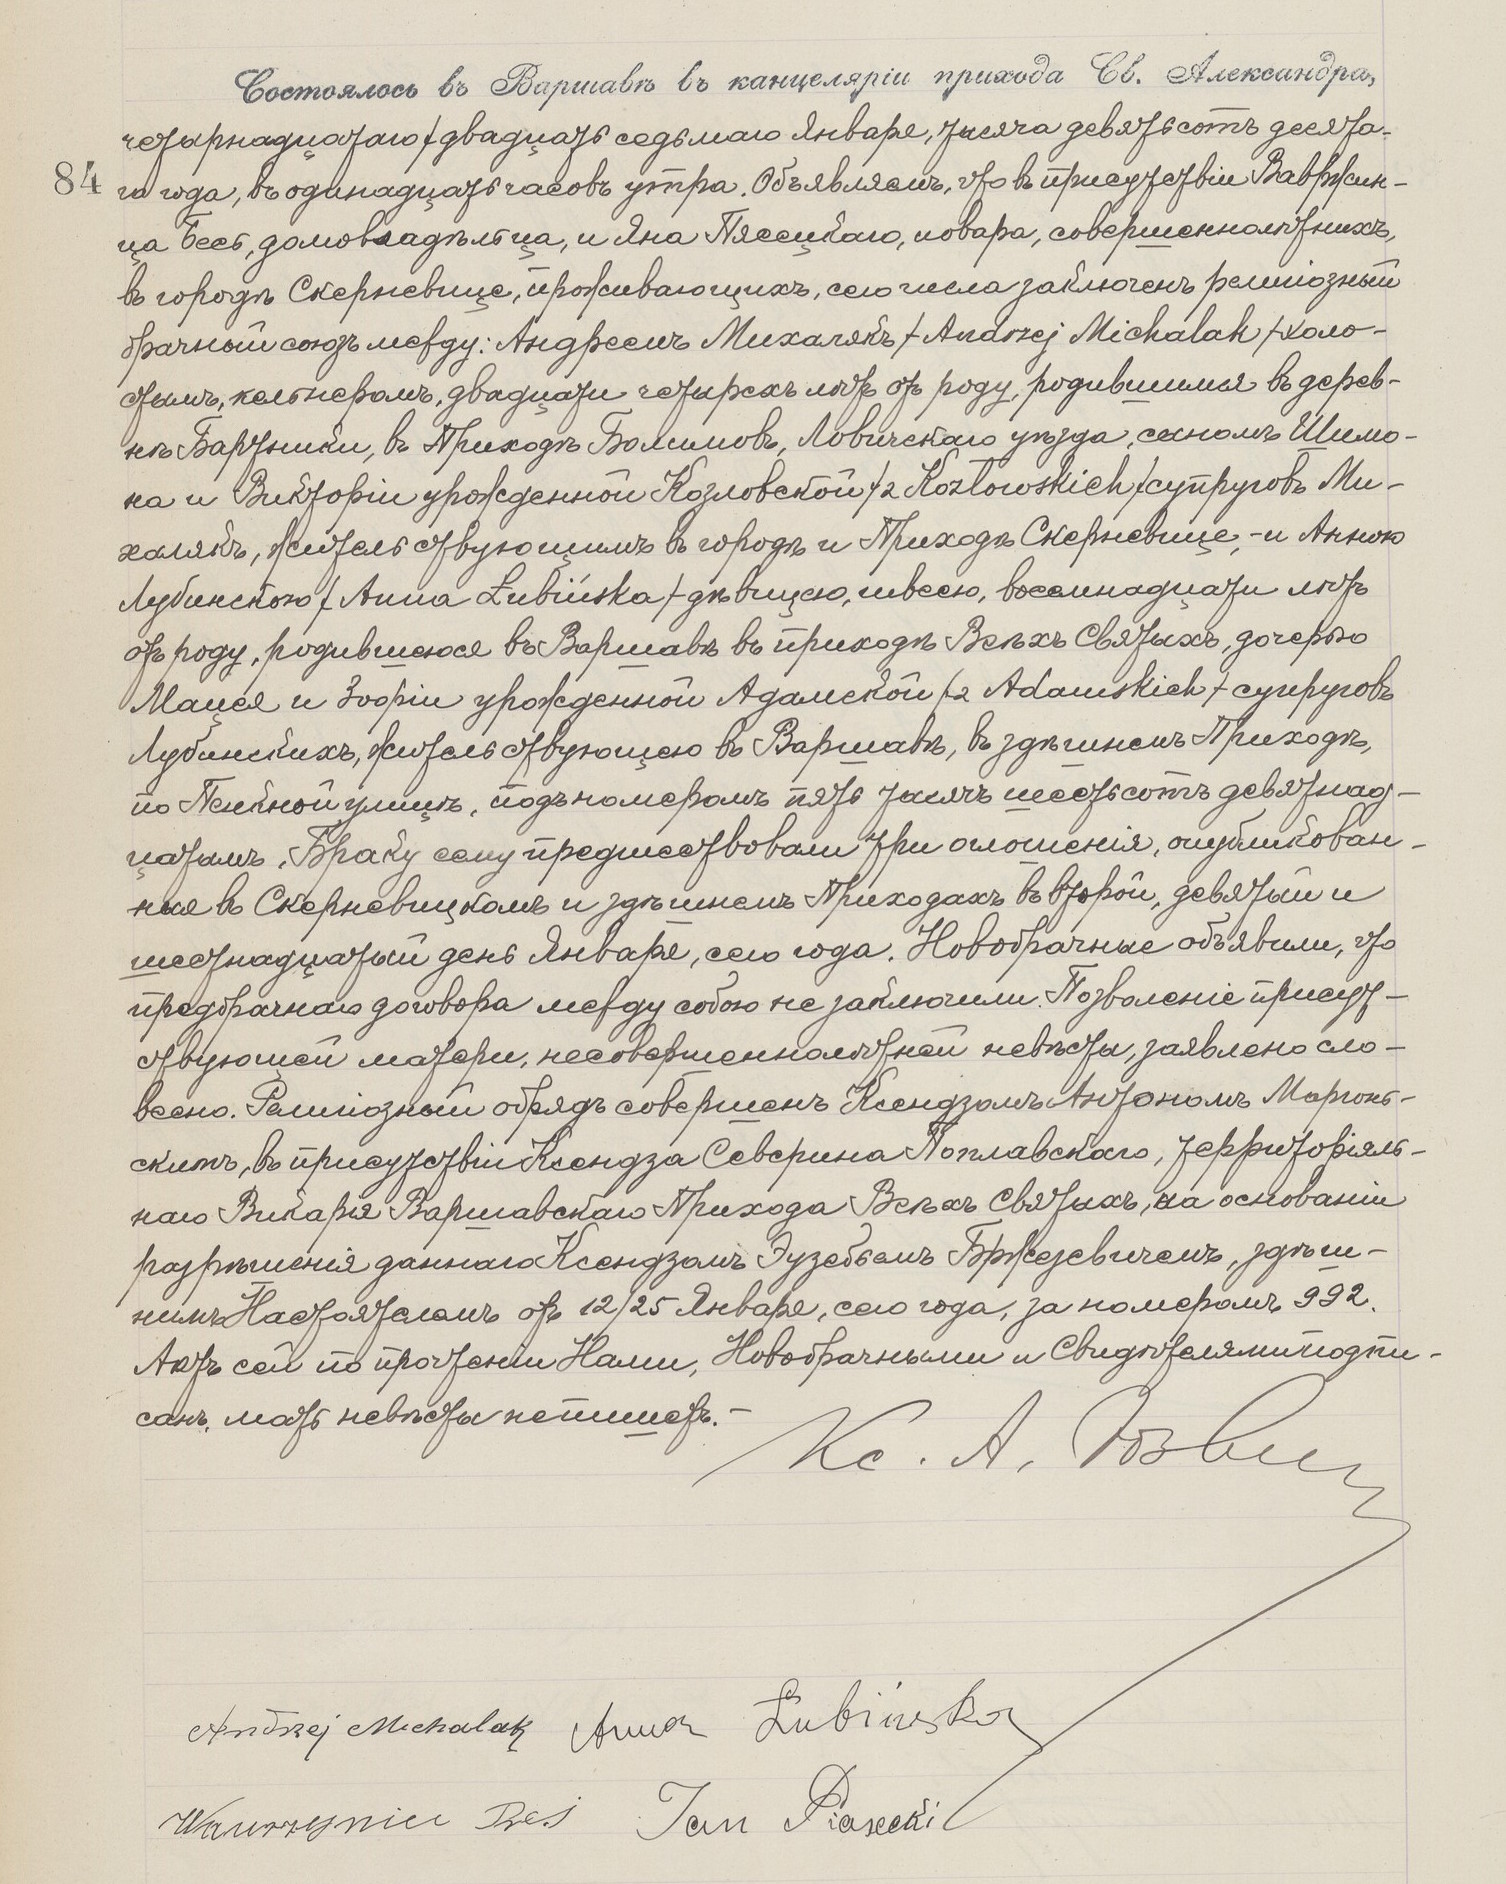 Состоялось въ Варшавѣ въ канцеляріи прихода Св. Александра,
четырнадцатаго / двадцать седьмаго Января, тысяча девятьсотъ десята-
84 го года, въ одинадцать часовъ утра. Объявляемъ, что въ присутствіи Вавржин-
ца Бесь, домовладѣльца, и Яна Пясецкаго, повара, совершеннолѣтнихъ,
въ городѣ Скерневице, проживающихъ, сего числа заключенъ религіозный
брачный союзъ между: Андреемъ Михалякъ / Andrzej Michalak / холо-
стымъ, кельнеромъ, двадцати четырехъ лѣтъ отъ роду, родившимся въ дерев-
нѣ Бартники, въ Приходѣ Болимовъ, Ловичскаго уѣзда, сыномъ Шимо-
на и Викторіи урожденной Козловской / z Kozłowskich / супруговъ Ми-
халякъ, жительствующимъ въ городѣ и Приходѣ Скерневице, - и Анною
Лубинскою / Anna Łubińska / дѣвицею, швеею, восемнадцати лѣтъ
отъ роду, родившеюся въ Варшавѣ въ приходѣ Всѣхъ Святыхъ, дочерью
Мацея и Зофіи урожденной Адамской / z Adamskich / супруговъ
Лубинскихъ, жительствующею въ Варшавѣ, въ здѣшнемъ Приходѣ,
по Пенкной улицѣ, подъ номеромъ пять тысячъ шестьсотъ девятнад-
цатымъ. Браку сему предшествовали три оглошенія, опубликован-
ныя въ Скерневицкомъ и здѣшнемъ Приходахъ въ второй, девятый и
шестнадцатый день Января, сего года. Новобрачные объявили, что
предбрачнаго договора между собою не заключили. Позволеніе присут-
ствующей матери, несовершеннолѣтней невѣсты, заявлено сло-
весно. Религіозный обрядъ совершенъ Ксендзомъ Антономъ Маргонь-
скимъ, въ присутствіи Ксендза Северина Поплавскаго, территоріяль-
наго Викарія Варшавскаго Прихода Всѣхъ Святыхъ, на основаніи
разрѣшенія даннаго Ксендзомъ Эузебьемъ Бржезевичемъ, здѣш-
нимъ Настоятелемъ отъ 12/25 Января, сего года, за номеромъ 992.
Актъ сей по прочтеніи Нами, Новобрачными и Свидѣтелями подпи-
санъ, мать невѣсты непишетъ. -
Кс. А.
Andrzej Michalak Anna Łubińska
Wawrzyniec Beś Jan Piasecki